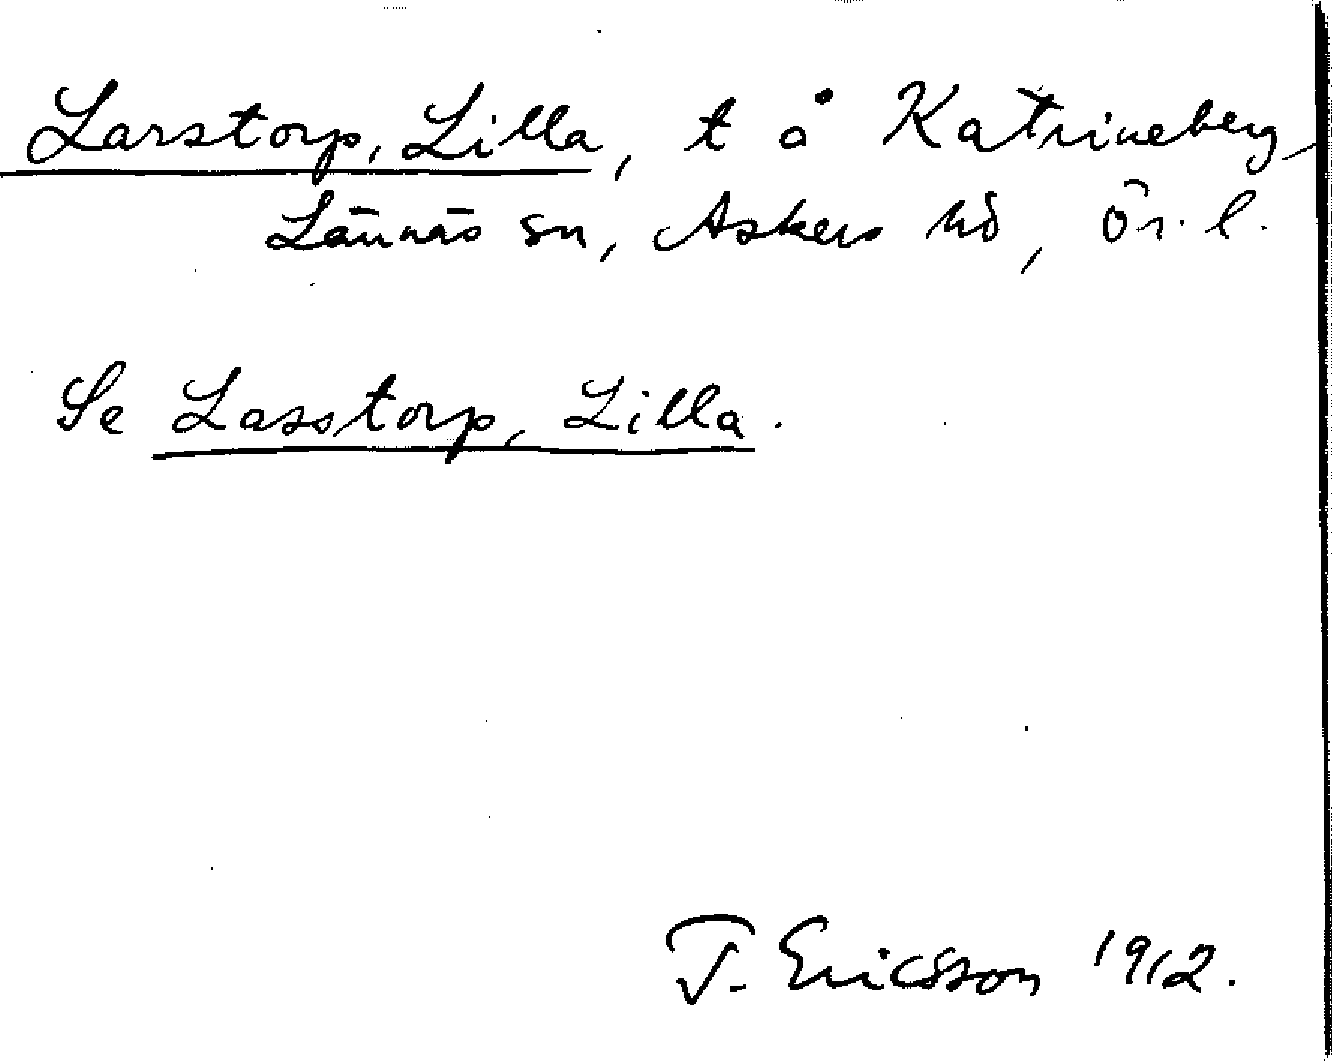 Larstorp, Lilla, t å Katrineberg,
Lännäs sn, Askers hd, Ör. l.
Se Lasstorp, Lilla.
T. Ericsson 1912.